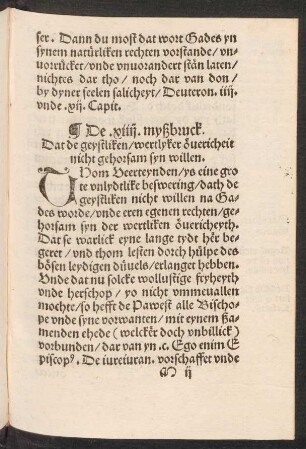 ser. Dann du most dat wort Gades yn
synem natürliken rechten vorstande/ vn⸗
uorrücket/ vnde vnuorandert stān laten/
nichtes dar tho/ noch dar van don/
by dyner seelen salicheyt/ Deuteron. iiij.
vnde .xij. Capit.
¶ De .xiiij. myßbruck.
Dat de geystliken/ wertlyker ǒuericheit
nicht gehorsam syn willen.
Thom Veerteynden/ ys eine gro
te vnlydtlike beswering/ dath de
geystliken nicht willen na Ga⸗
des worde/ vnde eren egenen rechten/ ge⸗
horsam syn der wertliken ǒuericheyth.
Dat se warlick eyne lange tydt hër be⸗
geret/ vnd thom lesten dorch hülpe des
bösen leydigen düuels/ erlanget hebben.
Vnde dat nu solcke wollustige fryheyth
vnde herschop/ yo nicht vmmeuallen
mochte/ so hefft de Pawest alle Bischo⸗
pe vnde syne vorwanten/ mit eynem ßa⸗
menden ehede (welckër doch vnbillick)
vorbunden/ dar van yn .c. Ego enim E
piscopꝰ. De iureiuran. vorschaffet vnde
M ij